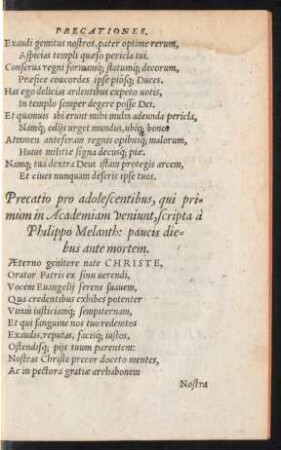 PRECATIONES.
Exaudi gemitus nostros, pater optime rerum,
Aspicias templi quæso pericla tui.
Conserua regni formamq́; statumq́; decorum,
Præfice concordes ipse piosq́; Duces.
Has ego delicias ardentibus expeto uotis,
In templo semper degere posse Dei.
Et quamuis ibi erunt mihi multa adeunda pericla,
Namq́; odijs urget mundus, ubiq́; bonos
Attamen anteferam regnis opibusq́; malorum,
Huius militiæ signa decusq́; piæ.
Namq́; tua dextra Deus istam protegis arcem,
Et ciues nunquam deseris ipse tuos.
Precatio pro adolescentibus, qui pri-
mùm in Academiam veniunt, scripta à
Philippo Melanth: paucis die-
bus ante mortem.
Æterno genitore nate CHRISTE,
Orator Patris ex sinu uerendi,
Vocem Euangelij ferens suauem,
Qua credentibus exhibes potenter
Vitam iusticiamq́; sempiternam,
Et qui sanguine nos tuo redemtos
Exaudis, reputas, facisq́; iustos,
Ostendisq́; pijs tuum parentem:
Nostras Christe precor doceto mentes,
Ac in pectora gratiæ arrhabonem
Nostra